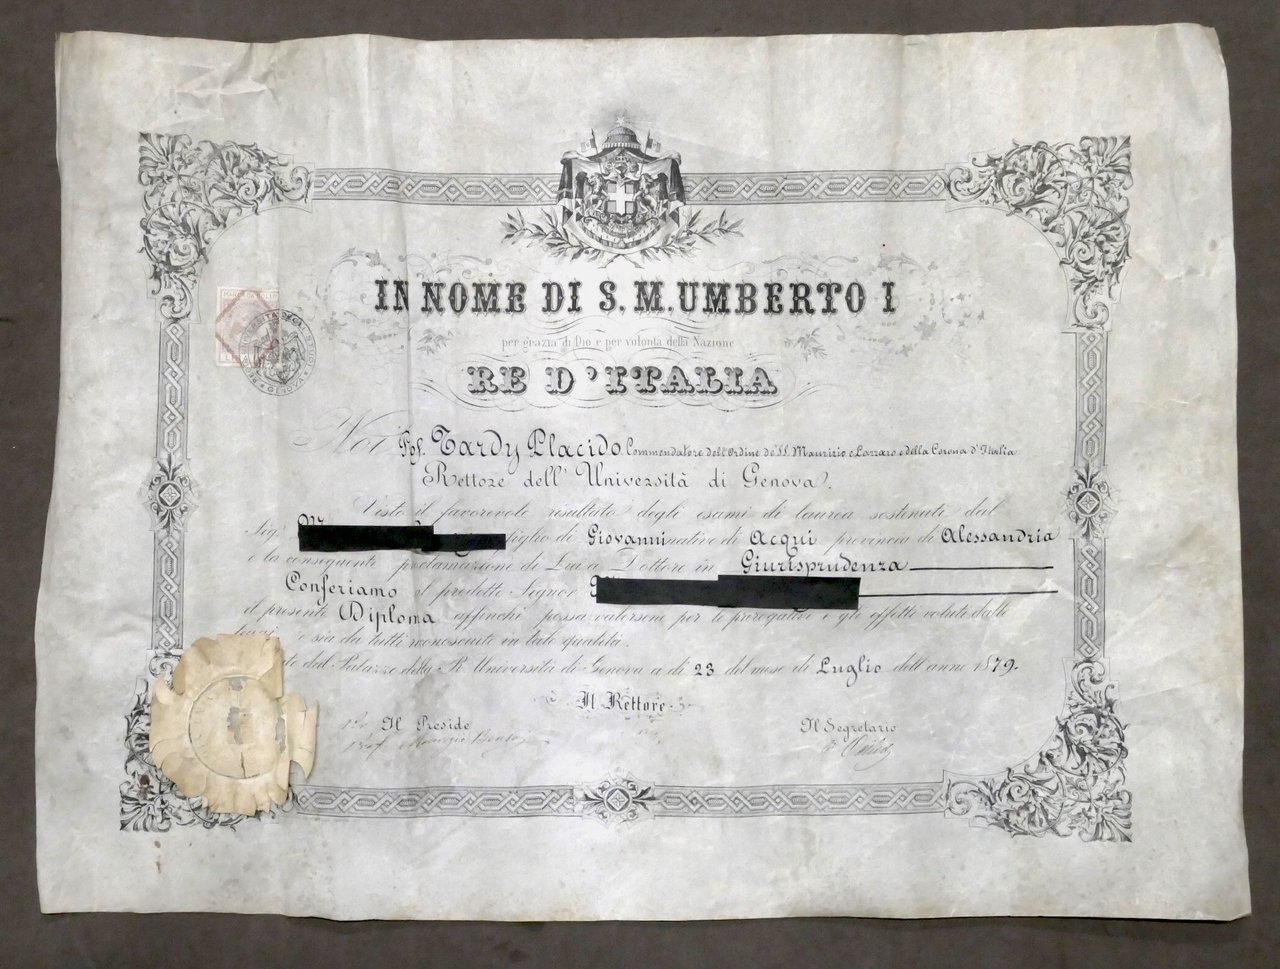 IN NOME DI S. M. UMBERTO I
per grazia di Dio e per volontà della Nazione
RE D'ITALIA
GENOVA
Noi Prof. Tardy Placido Commendatore dell'Ordine de' SS. Maurizio e Lazzaro e della Corona d'Italia
Rettore dell'Università di Genova.
Visto il favorevole risultato degli esami di laurea sostenuti dal
Sig. figlio di Giovanni nativo di Acqui provincia di Alessandria
e la conseguente proclamazione di Lui a Dottore in Giurisprudenza
Conferiamo al predetto Signor
il presente Diploma affinchè possa valersene per le prerogative e gli effetti voluti dalle
leggi e sia da tutti riconosciuto in tale qualità.
dal Palazzo della R. Università di Genova a dì 23 del mese di Luglio dell'anno 1879.
Il Rettore
Il Preside
Il Segretario
Prof.